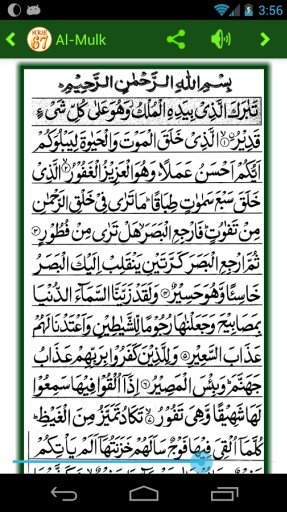 3:56
SURAH
67
Al-Mulk
بِسْمِ اللهِ الرَّحْمٰنِ الرَّحِيْمِ
تَبٰرَكَ الَّذِىْ بِيَدِهِ الْمُلْكُ وَهُوَ عَلٰى كُلِّ شَىْءٍ
قَدِيْرُ ۙ﴿۱﴾ الَّذِىْ خَلَقَ الْمَوْتَ وَالْحَيٰوةَ لِيَبْلُوَكُمْ
اَيُّكُمْ اَحْسَنُ عَمَلًا ؕ وَهُوَ الْعَزِيْزُ الْغَفُوْرُ ۙ﴿۲﴾ الَّذِىْ
خَلَقَ سَبْعَ سَمٰوٰتٍ طِبَاقًا ؕ مَا تَرٰى فِىْ خَلْقِ الرَّحْمٰنِ
مِنْ تَفٰوُتٍ ؕ فَارْجِعِ الْبَصَرَ ۙ هَلْ تَرٰى مِنْ فُطُوْرٍ ﴿۳﴾
ثُمَّ ارْجِعِ الْبَصَرَ كَرَّتَيْنِ يَنْقَلِبْ اِلَيْكَ الْبَصَرُ
خَاسِئًا وَّهُوَ حَسِيْرٌ ﴿۴﴾ وَلَقَدْ زَيَّنَّا السَّمَآءَ الدُّنْيَا
بِمَصَابِيْحَ وَجَعَلْنٰهَا رُجُوْمًا لِّلشَّيٰطِيْنِ وَاَعْتَدْنَا لَهُمْ
عَذَابَ السَّعِيْرِ ﴿۵﴾ وَلِلَّذِيْنَ كَفَرُوْا بِرَبِّهِمْ عَذَابُ
جَهَنَّمَ ؕ وَبِئْسَ الْمَصِيْرُ ﴿۶﴾ اِذَآ اُلْقُوْا فِيْهَا سَمِعُوْا
لَهَا شَهِيْقًا وَّهِىَ تَفُوْرُ ۙ﴿۷﴾ تَكَادُ تَمَيَّزُ مِنَ الْغَيْظِ ؕ
كُلَّمَآ اُلْقِىَ فِيْهَا فَوْجٌ سَاَلَهُمْ خَزَنَتُهَآ اَلَمْ يَاْتِكُمْ